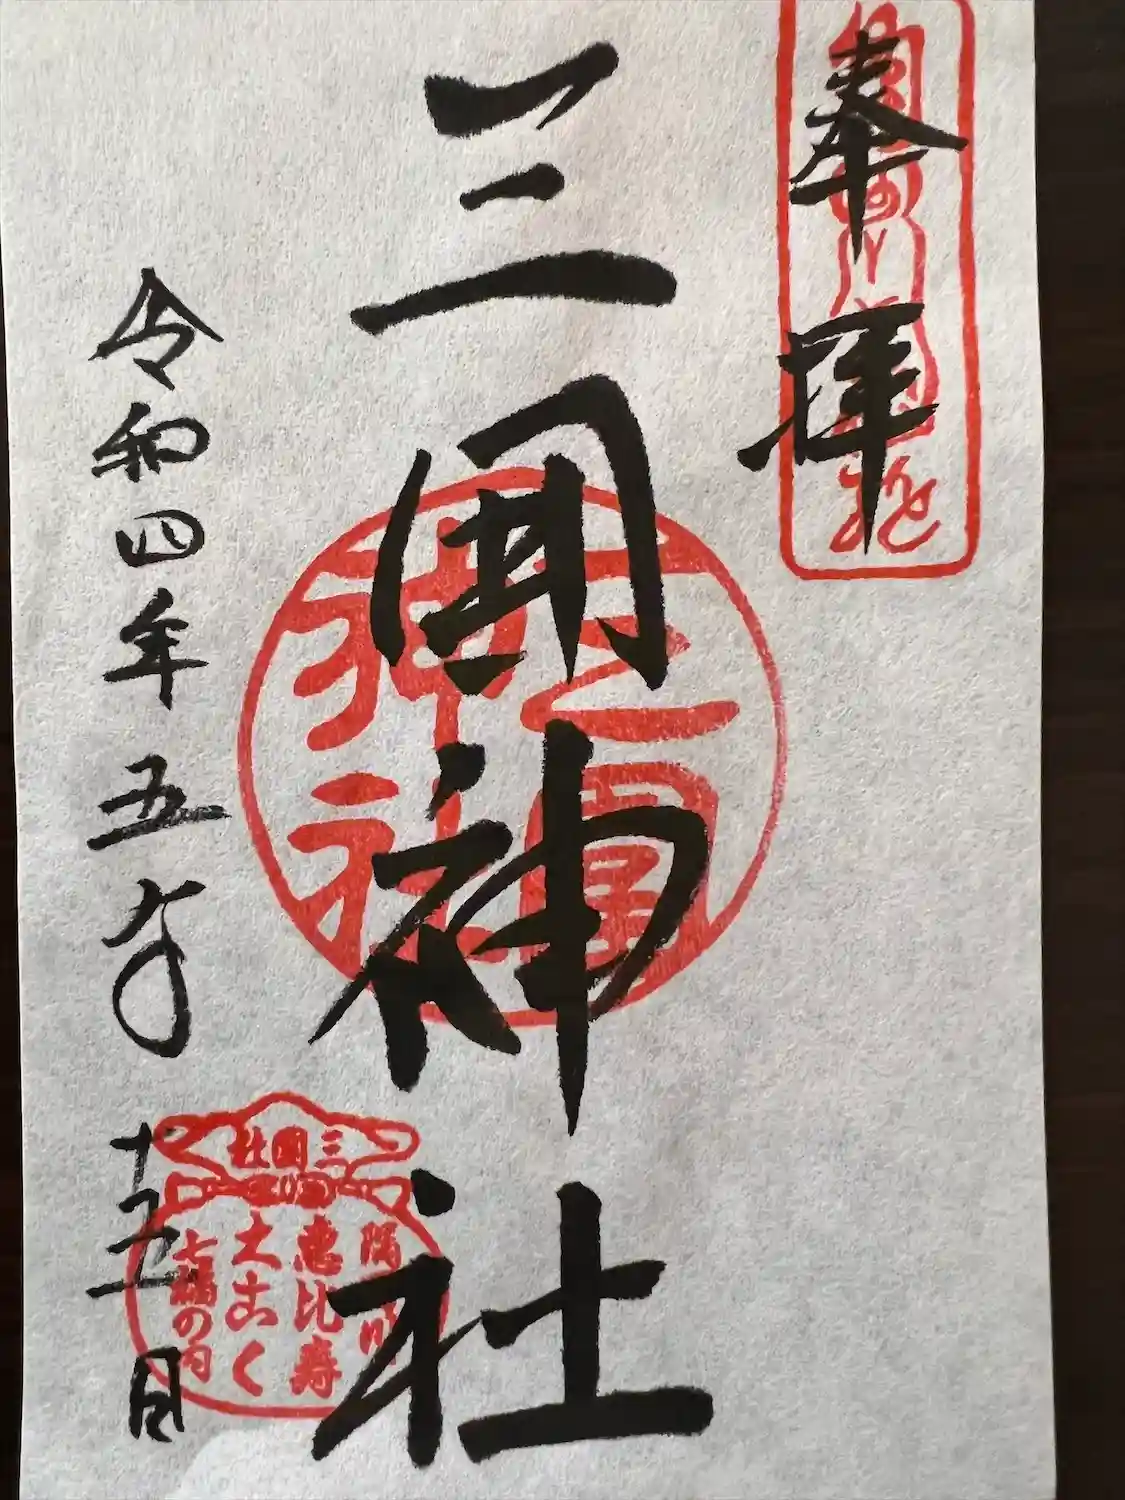 奉拝
三囲神社
三囲神社
令和四年五月十五日
三囲社
隅田川
恵比寿
大こく
七福の内